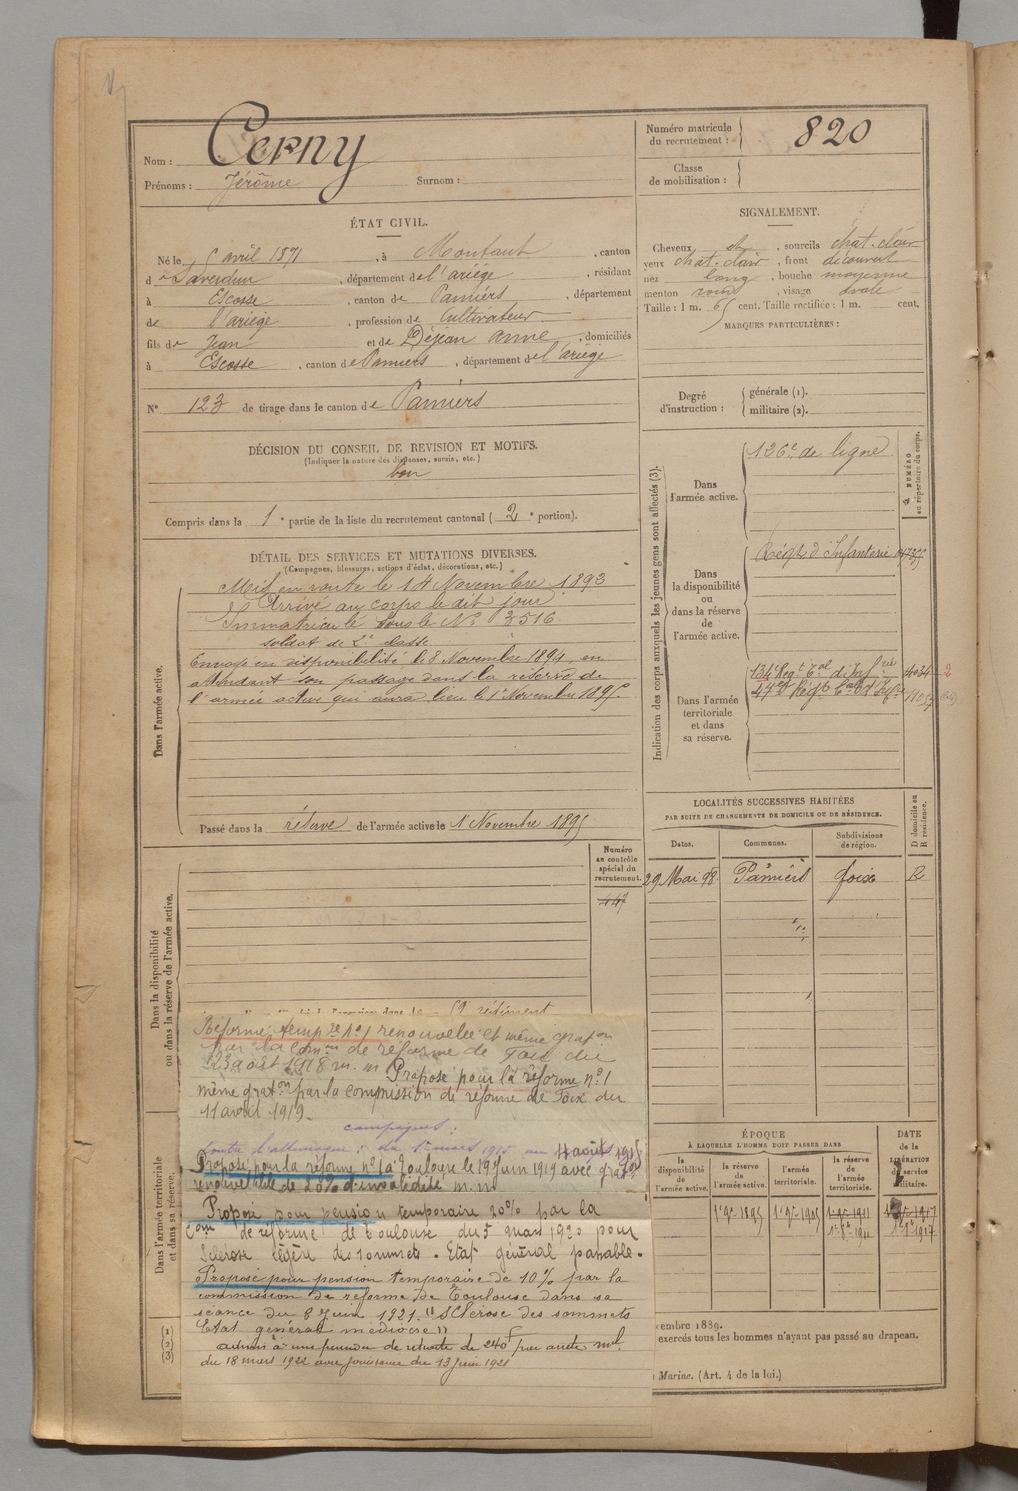 Nom : Cerny
Prénoms : Jérôme Surnom :
Numéro matricule du recrutement : 820
Classe de mobilisation :
ÉTAT CIVIL.
Né le 5 avril 1871, à Montaut, canton
de Saverdun, département de l'ariège, résidant
à Escosse, canton de Pamiérs, département
de l'ariège, profession de Cultivateur
fils de Jean et de Déjean anne, domiciliés
à Escosse, canton de Pamiers, département de l'ariége
N° 123 de tirage dans le canton de Pamiérs
SIGNALEMENT.
Cheveux, sourcils chat. clair
yeux chat. clair, front découvert
nez long, bouche moyenne
menton rond, visage ovale
Taille : 1 m. 65 cent. Taille rectifiée : 1 m. cent.
MARQUES PARTICULIÈRES :
Degré d'instruction : générale (1).
militaire (2).
DÉCISION DU CONSEIL DE REVISION ET MOTIFS.
(Indiquer la nature des dispenses, sursis, etc.)
bon
Compris dans la 1e partie de la liste du recrutement cantonal (2e portion).
DÉTAIL DES SERVICES ET MUTATIONS DIVERSES.
(Campagnes, blessures, actions d'éclat, décorations, etc.)
Dans l'armée active.
Mis en route le 14 Novembre 1893
Arrivé au corps le dit jour
Immatriculé sous le N° 3516
soldat de 2e classe
Envoyé en disponibilité le 8 Novembre 1894, en
attendant son passage dans la réserve de
l'armée active qui aura lieu le 1 Novembre 1895
Passé dans la réserve de l'armée active le 1 Novembre 1895
Indication des corps auxquels les jeunes gens sont affectés (3).
NUMÉRO au répertoire du corps.
Dans l'armée active.
126e de ligne
Dans la disponibilité ou dans la réserve de l'armée active.
Régt d'Infanterie
Dans l'armée territoriale et dans sa réserve.
134e Régt Tal d'Infrie
LOCALITÉS SUCCESSIVES HABITÉES
PAR SUITE DE CHANGEMENTS DE DOMICILE OU DE RÉSIDENCE.
Dates. Communes. Subdivisions de région. D domicile ou R résidence.
29 Mai 98 Pamiérs foix R
Numéro au contrôle spécial du recrutement.
Dans la disponibilité ou dans la réserve de l'armée active.
régiment
Réforme tempre n° 1 renouvellée et même graton
par la Comon de réforme de Foix du
23 août 1918 Proposé pour la réforme n° 1
même graton par la commission de réforme de Foix du
11 avril 1919.
campagnes :
contre l'allemagne : du 1er mars 1915 au 4 août 1915
Proposé pour la réforme n° 1 à Toulouse le 19 juin 1919 avec graton
renouvelable de 20% d'invalidité
Proposé pour pension temporaire 20% par la
Com de réforme de Toulouse du 5 mars 1920 pour
Sclérose légère des sommets. Etat général passable.
Proposé pour pension temporaire de 10% par la
commission de réforme de Toulouse dans sa
séance du 8 Juin 1921. "Sclérose des sommets
Etat général médiocre"
admis à une pension de retraite de 240f par arrêté ml.
du 18 mars 1922 avec jouissance du 13 juin 1921
Dans l'armée territoriale et dans sa réserve.
(1)
(2)
(3)
ÉPOQUE
À LAQUELLE L'HOMME DOIT PASSER DANS
DATE de la LIBÉRATION du service militaire.
la disponibilité de l'armée active. la réserve de l'armée active. l'armée territoriale. la réserve de l'armée territoriale.
1 9bre 1895 1 9bre 1905 1 9bre 1911 1 9bre 1917
cembre 1889.
exercés tous les hommes n'ayant pas passé au drapeau.
Marine. (Art. 4 de la loi.)